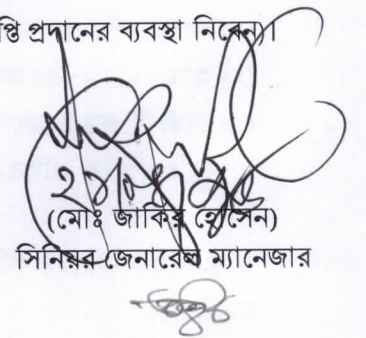 প্তি প্রদানের ব্যবস্থা নিবেন)।
(মোঃ জাকির হোসেন)
সিনিয়র জেনারেল ম্যানেজার